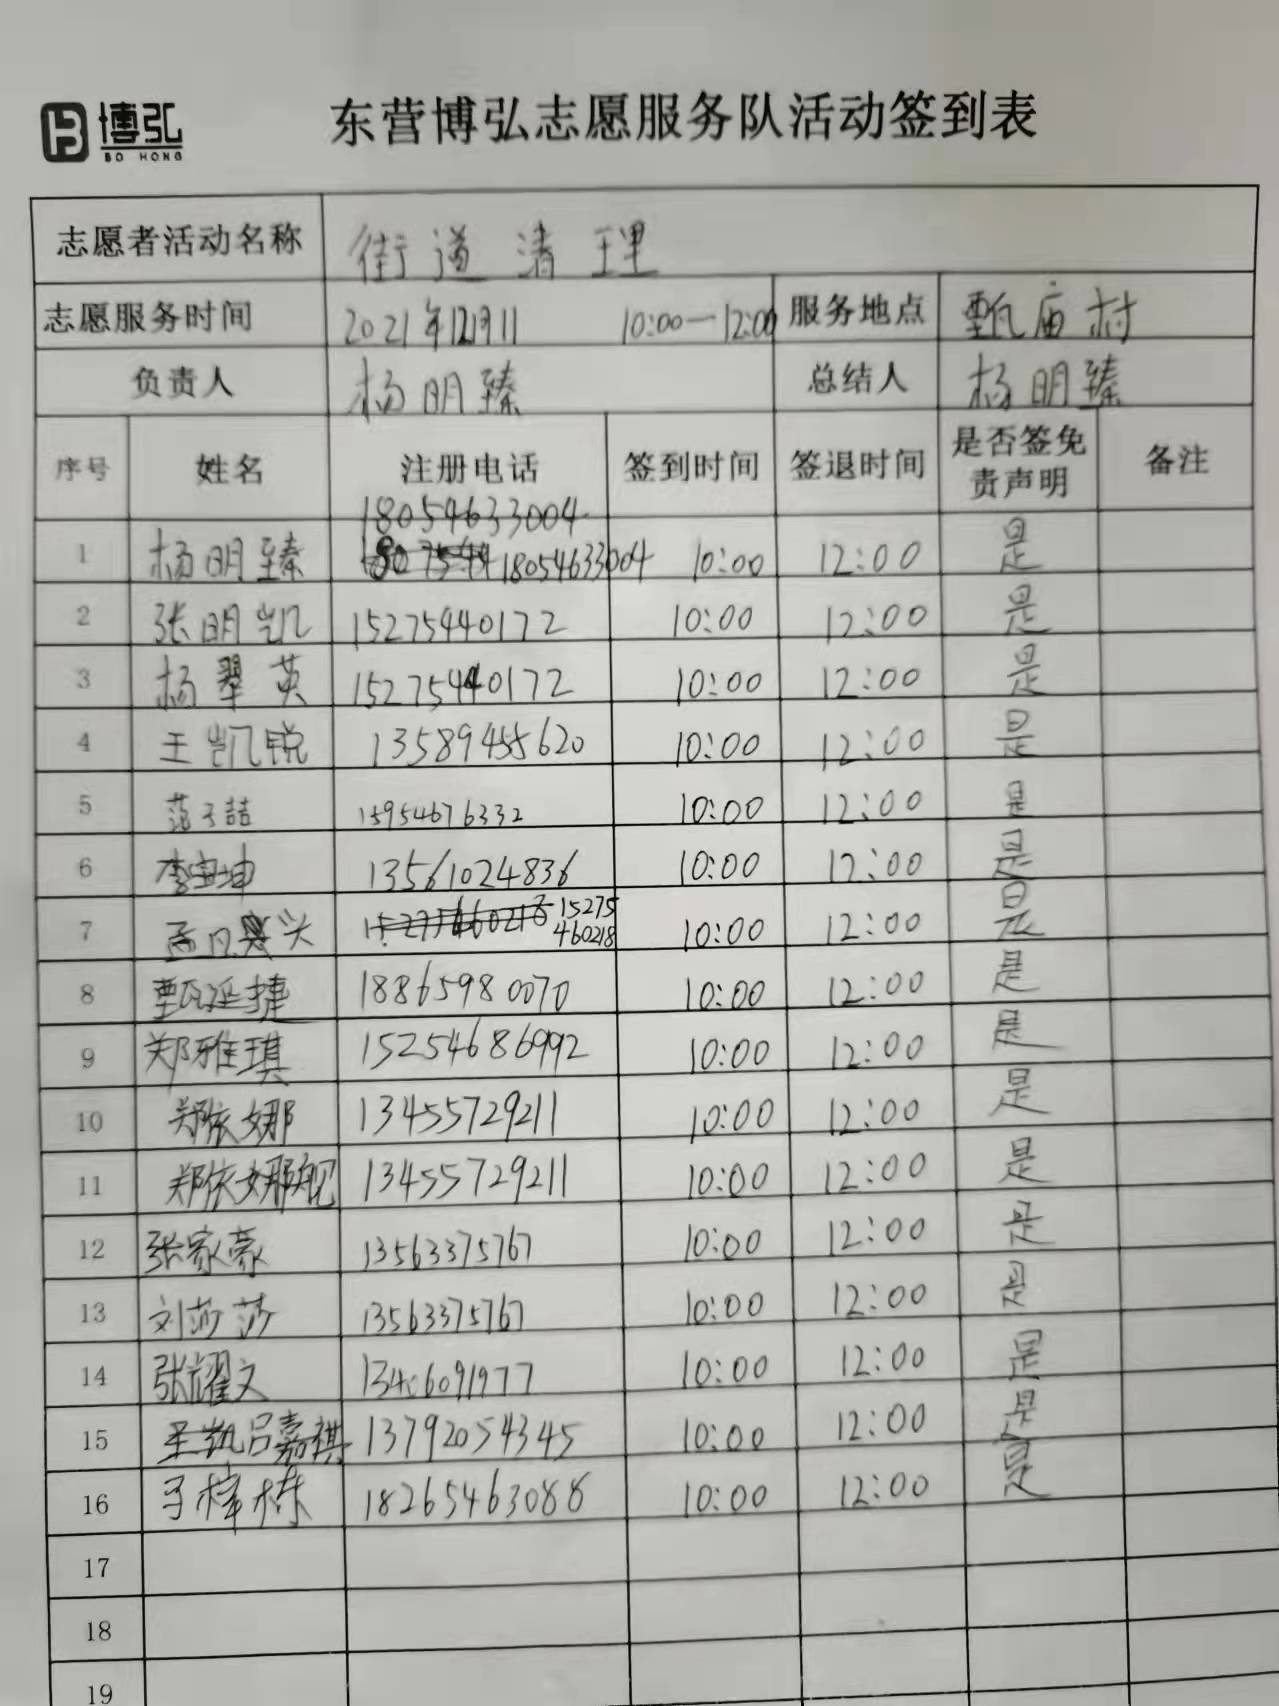 博弘
BO HONG
东营博弘志愿服务队活动签到表
志愿者活动名称 街道清理
志愿服务时间 2021年12月11 10:00—12:00 服务地点 甄庙村
负责人 杨明臻 总结人 杨明臻
序号 姓名 注册电话 签到时间 签退时间 是否签免责声明 备注
18054633004
1 杨明臻 18054633004 10:00 12:00 是
2 张明凯 15275440172 10:00 12:00 是
3 杨翠英 15275440172 10:00 12:00 是
4 王凯锐 13589455620 10:00 12:00 是
5 范子喆 15954676332 10:00 12:00 是
6 李宝坤 13561024836 10:00 12:00 是
7 孟凡兴 15275460218 10:00 12:00 是
8 甄延捷 18865980070 10:00 12:00 是
9 郑雅琪 15254686992 10:00 12:00 是
10 郑依娜 13455729211 10:00 12:00 是
11 郑依 13455729211 10:00 12:00 是
12 张家豪 13563375767 10:00 12:00 是
13 刘莎莎 13563375767 10:00 12:00 是
14 张耀文 13406091977 10:00 12:00 是
15 吕嘉祺 13792054345 10:00 12:00 是
16 于梓栋 18265463088 10:00 12:00 是
17
18
19